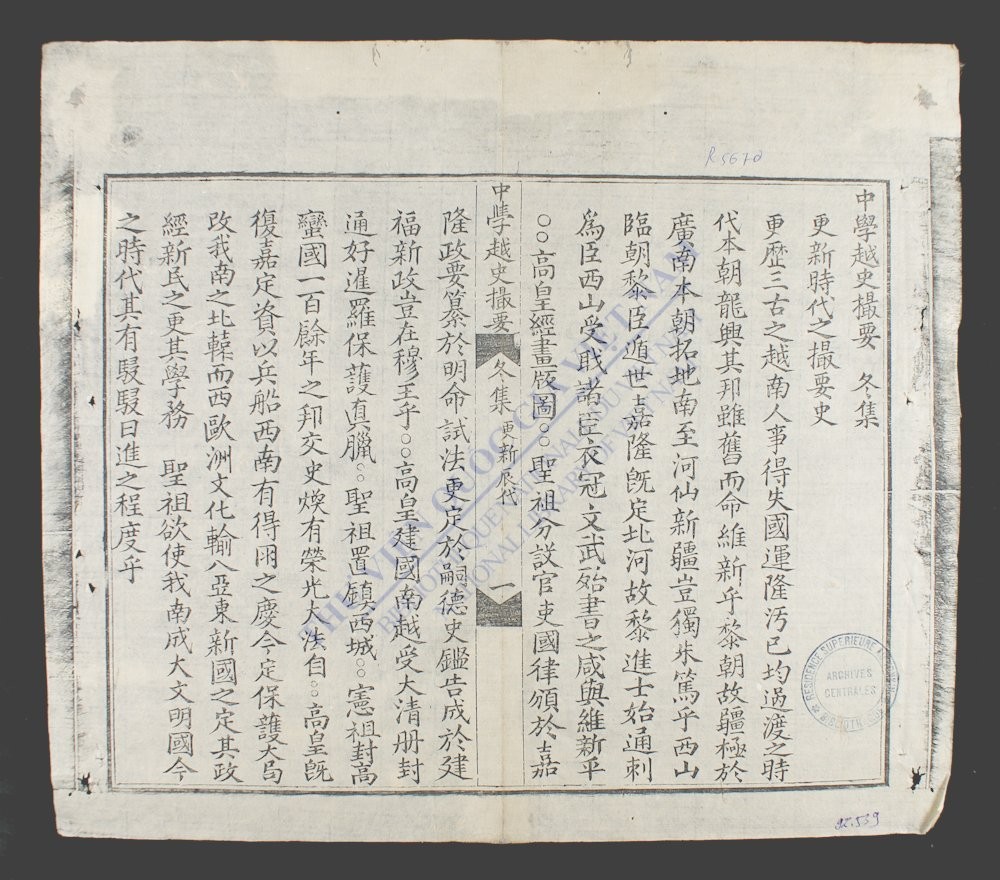 中學越史撮要 冬集
更新時代之撮要史
更歷三古之越南人事得失國運隆汚已均過渡之時
代本朝龍興其邦雖舊而命維新乎黎朝故疆極於
廣南本朝拓地南至河仙新疆豈獨朱篤乎西山
臨朝黎臣遁世嘉隆既定北河故黎進士始通刺
爲臣西山受戢諸臣衣冠文武殆書之咸與維新乎
○○高皇經畫版圖○○聖祖分設官吏國律頒於嘉
中學越史撮要 冬集 更新辰代 一
隆政要纂於明命試法更定於嗣德史鑑告成於建
福新政豈在穆王乎○○高皇建國南越受大清册封
通好暹羅保護真臘○○聖祖置鎮西城○○憲祖封高
蠻國一百餘年之邦交史煥有榮光大法自○○高皇既
復嘉定資以兵船西南有得朋之慶今定保護大局
改我南之北轅而西歐洲文化輸入亞東新國之定其政
經新民之更其學務 聖祖欲使我南成大文明國今
之時代其有駸駸日進之程度乎
R5670
THƯ VIỆN QUỐC GIA VIỆT NAM
BIBLIOTHÈQUE NATIONALE DU VIETNAM
NATIONAL LIBRARY OF VIETNAM
RESIDENCE SUPERIEURE
ARCHIVES
CENTRALES